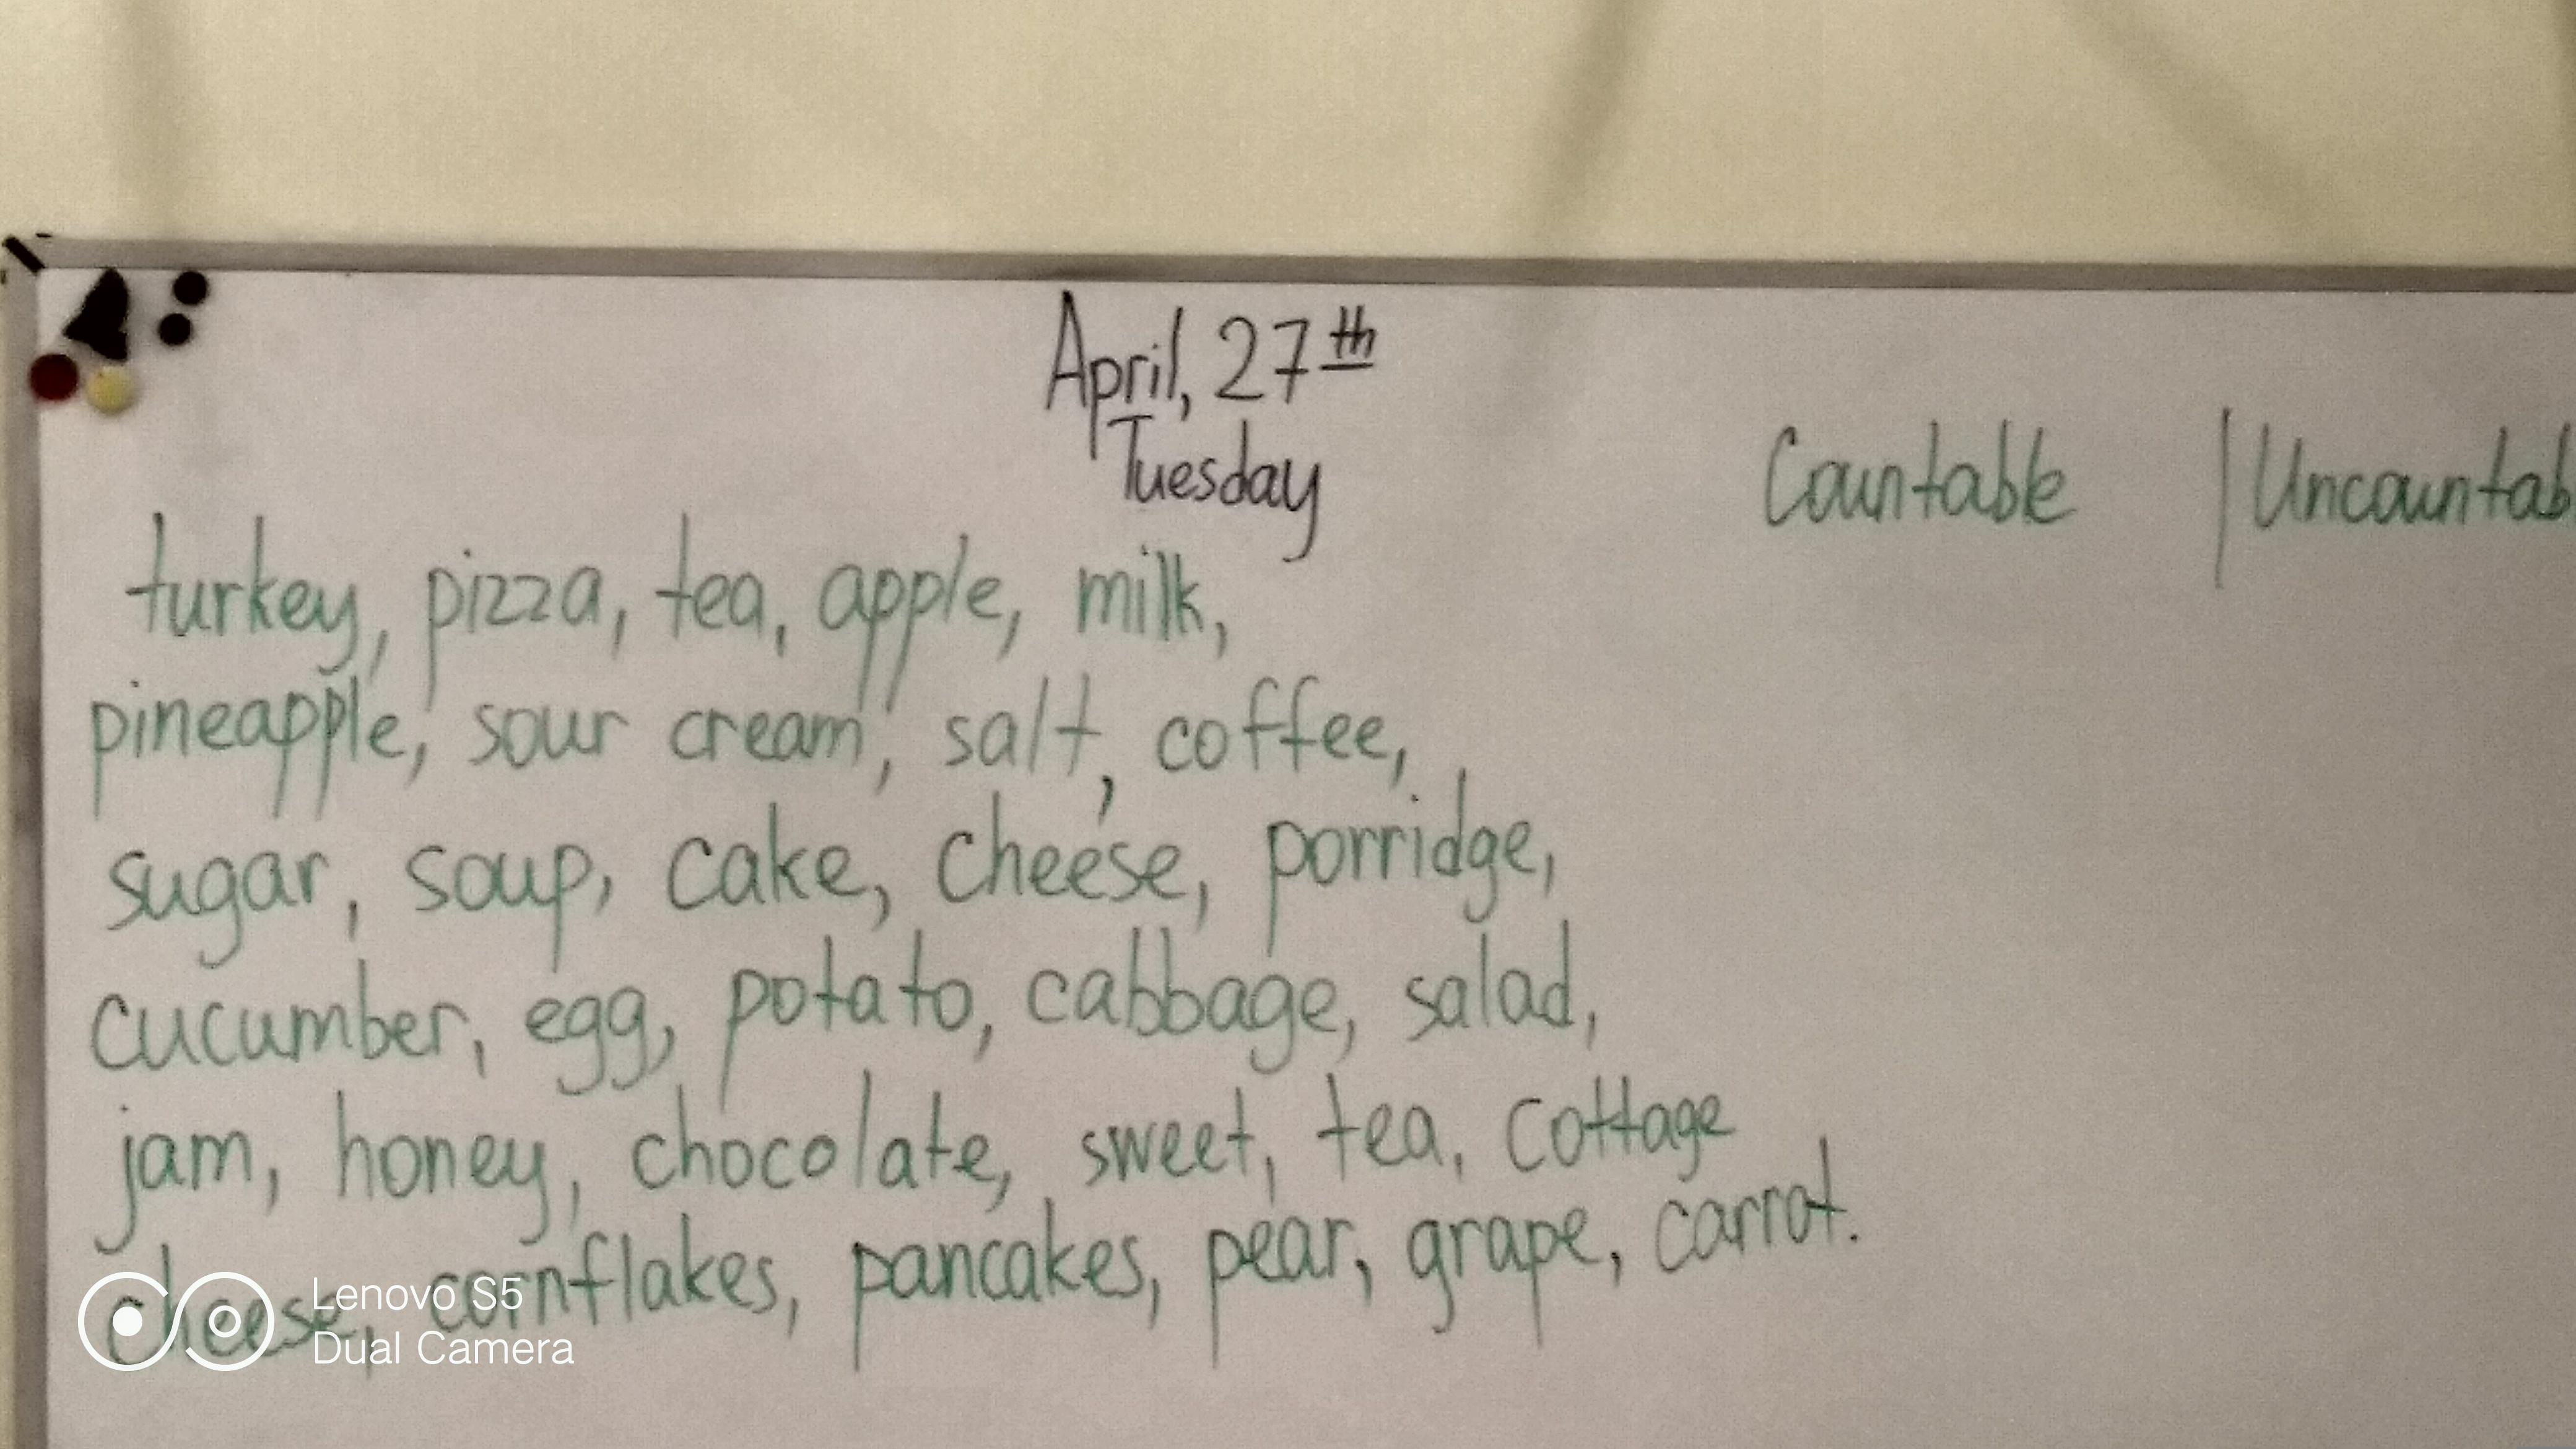 April, 27th
Tuesday
Countable | Uncountab
turkey, pizza, tea, apple, milk,
pineapple, sour cream, salt, coffee,
sugar, soup, cake, cheese, porridge,
cucumber, egg, potato, cabbage, salad,
jam, honey, chocolate, sweet, tea, cottage
cheese, cornflakes, pancakes, pear, grape, carrot.
Lenovo S5
Dual Camera